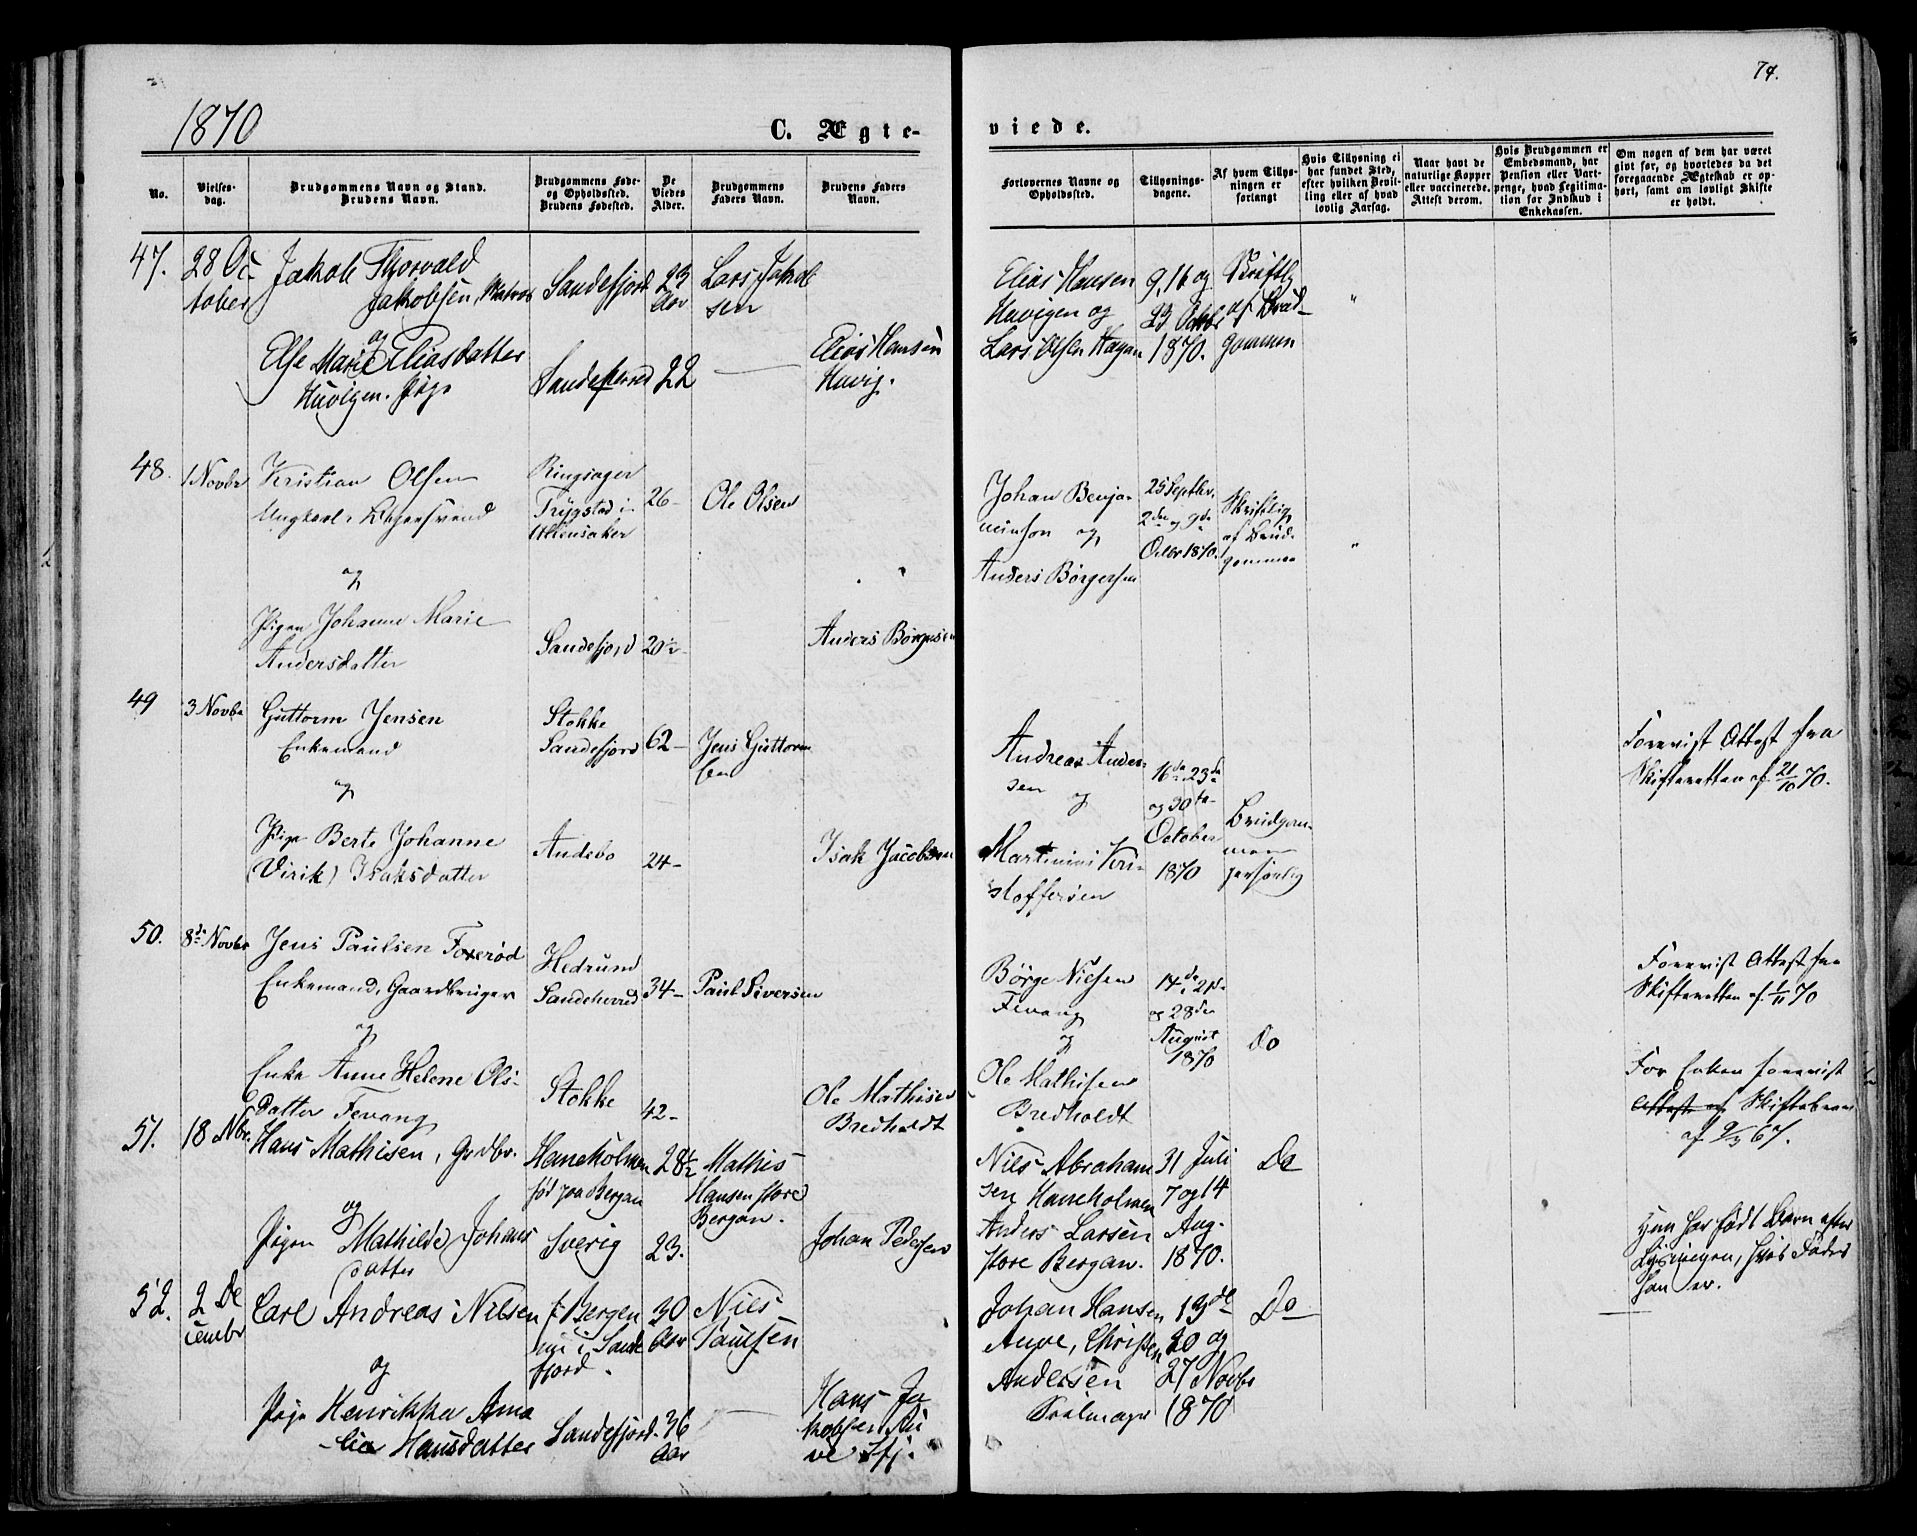 74.
1870
C. Ægte-
viede.
No.
Vielses-
dag.
Brudgommens Navn og Stand.
Brudens Navn.
Brudgommens Føde-
og Opholdssted.
Brudens Fødested.
De
Viedes
Alder.
Brudgommens
Faders Navn.
Brudens Faders
Navn.
Forlovernes Navne og
Opholdssted.
Tillysnings-
dagene.
Af hvem Tillys-
ningen er
forlangt
Hvis Tillysning ei
har fundet Sted,
efter hvilken Bevil-
ling eller af hvad
lovlig Aarsag.
Naar havt de
naturlige Kopper
eller vaccinerede.
Attest derom.
Hvis Brudgommen er
Embedsmand, har
Pension eller Vart-
penge, hvad Legitima-
tion for Indskud i
Enkekassen.
Om nogen af dem har været
givt før, og hvorledes da det
foregaaende Ægteskab er op-
hørt, samt om lovligt Skifte
er holdt.
47.
28 Oc
tober
Jakob Thorvald
Jakobsen, Matros
og
Else Marie Eliasdatter
Huvigen. Pige
Sandefjord
Sandeherred
23
Aar
22
Lars Jakob
sen
Elias Hansen
Huvig.
Elias Hansen
Huvigen og
Lars Olsen Hagan
9, 16 og
23 Octbr
1870.
Skriftlg
af Brud-
gommen
48.
1 Novbr
Kristian Olsen
Ungkarl
og
Pigen Johanne Marie
Andersdatter
Ringsager
Trygstad i
Ullensaker
Sandefjord
26
20½
Ole Olsen
Anders Børgesen
Johan Benja-
minson og
Anders Børgersen
25 Septbr.
2den og 9de
Octbr 1870.
Skriftlig
af Brud-
gommen
49
3 Novbr
Guttorm Jensen
Enkemand
og
Pige Berte Johanne
(Virik) Isaksdatter
Stokke
Sandefjord
Andebo
62
24
Jens Guttorm
sen
Isak Jacobsen
Andreas Ander-
sen og
Martinius Kri-
stoffersen
16de 23de
og 30te
October
1870
Brudgom-
men
personlig
Forevist Attest fra
Skifteretten af 21/10 70.
50.
8de Novbr
Jens Paulsen Foxerød
Enkemand, Gaardbruger
og
Enke Anne Helene Ols-
datter Fevang
Hedrum
Sandeherred
Stokke
34
42
Paul Siversen
Ole Mathisen
Bredholdt
Børge Nielsen
Fevang
og
Ole Mathisen
Bredholdt
14de 21de
og 28de
August
1870
Do
Forevist Attest fra
Skifteretten af 1/11 70
For Enken forevist
Attest af Skiftebrev
af 9/3 67.
51.
18 Nbr.
Hans Mathisen, Grdbr.
og
Pigen Mathilde Johans
datter
Haneholmen
fød paa Bergan
Sverig
28½
23.
Mathis
Hansen store
Bergan.
Johan Pedersen
Nils Abraham
sen Haneholmen
Anders Larsen
store Bergan.
31 Juli
7 og 14
Aug.
1870.
Do
Hun har født Barn efter
Lysningen, hvis Fader
han er.
52.
2 De
cembr
Carl Andreas Nilsen
og
Pige Henrikka Ama
lia Hansdatter
f. Bergen
nu i Sande
fjord.
Sandefjord.
30
Aar
36
Aar
Niels
Paulsen
Hans Ja
kobsen Au
ve Sfj.
Johan Hansen
Auve, Christen
Andersen
13de
20 og
27 Novbr
1870
Do